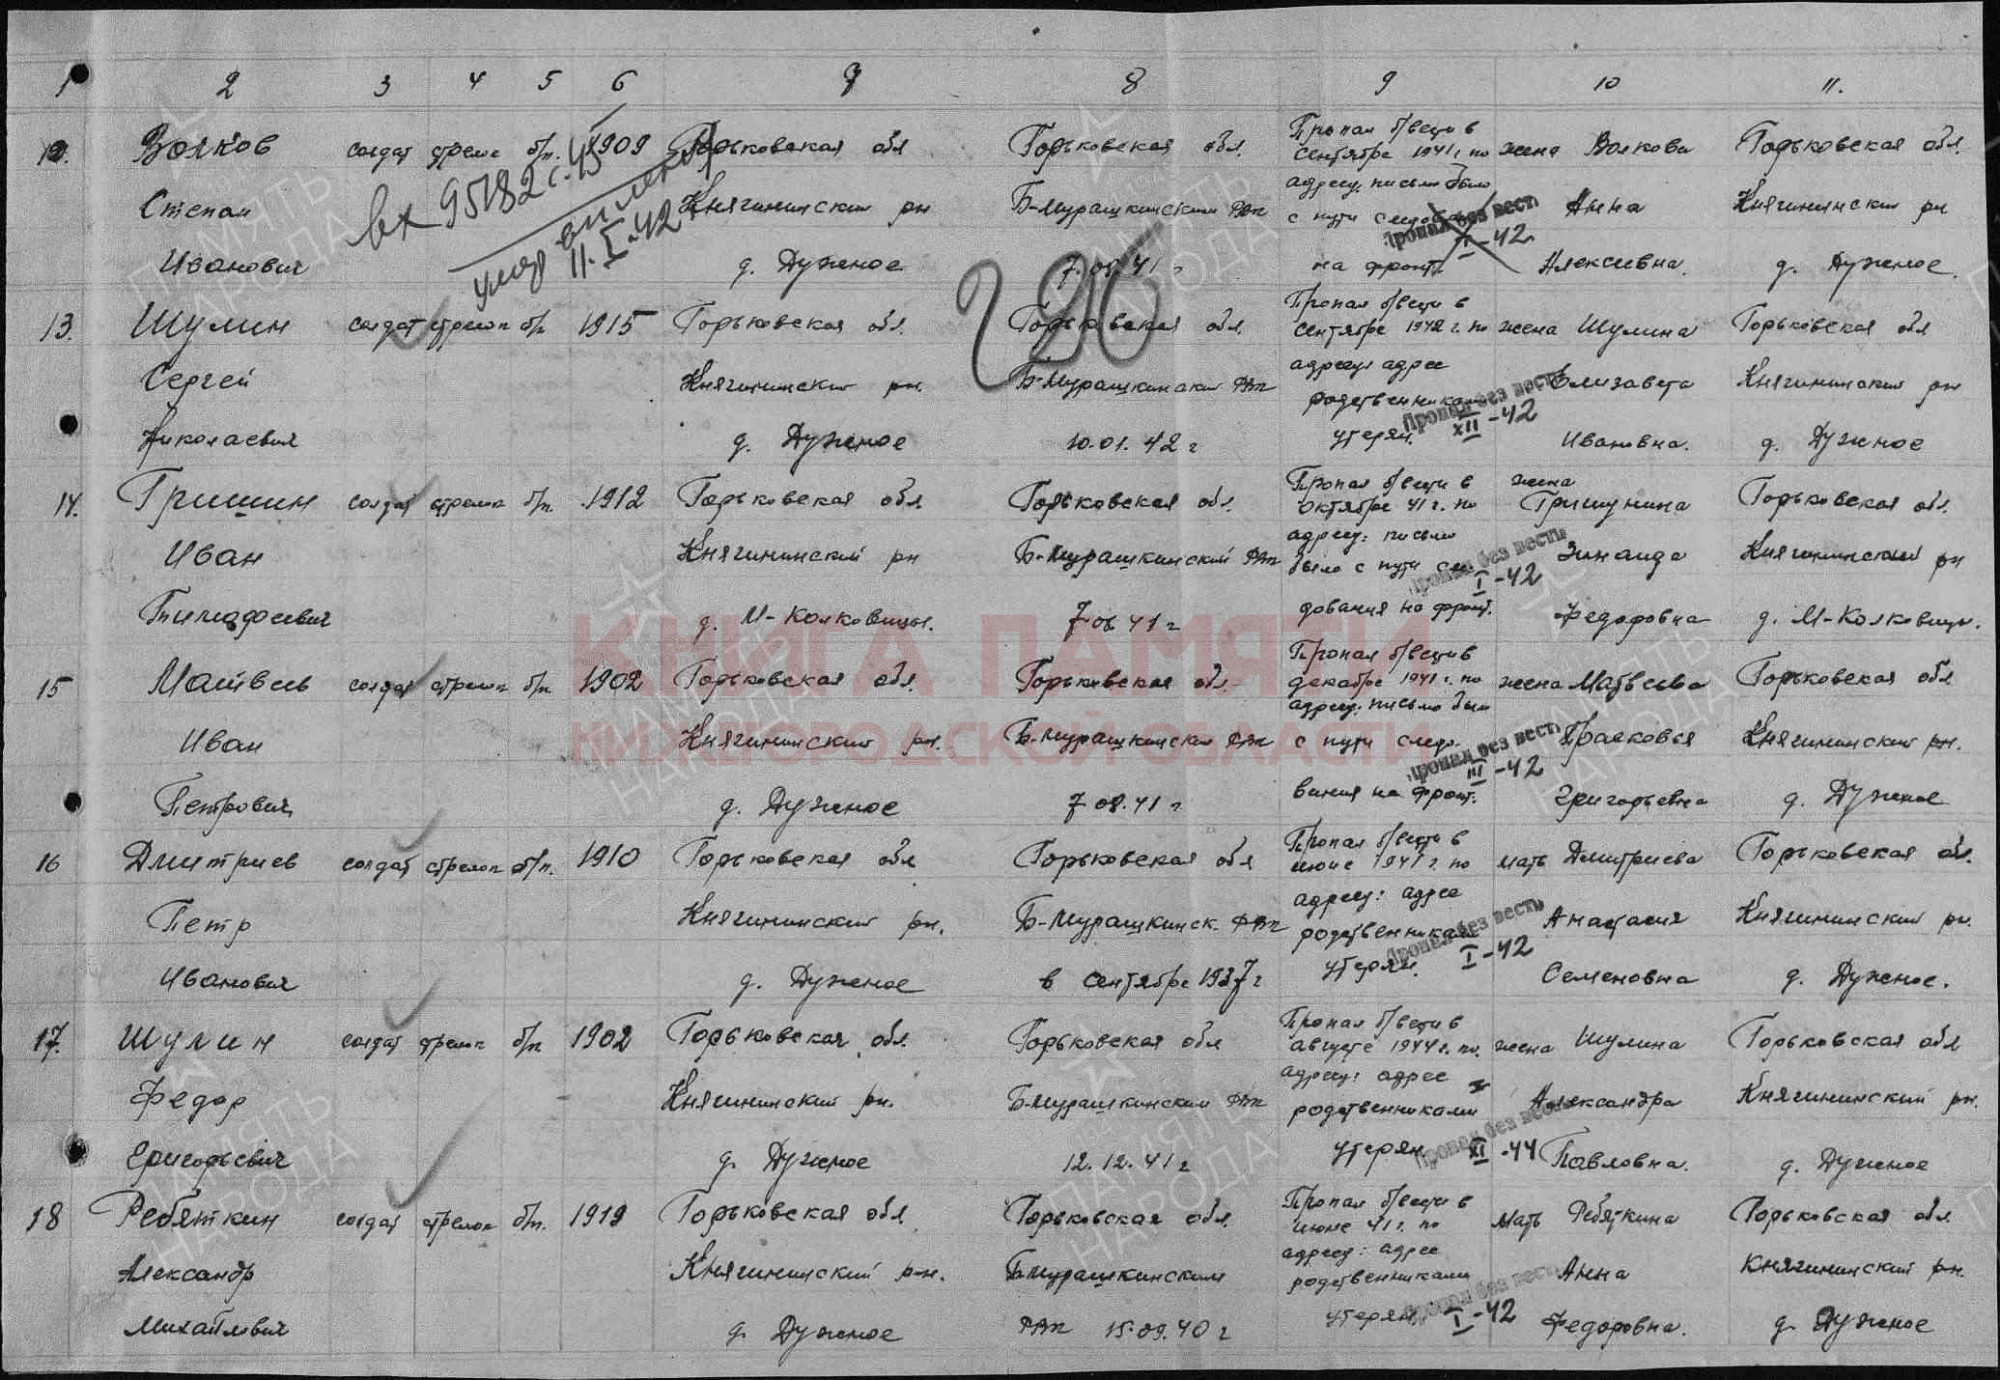 1 2 3 4 5 6 7 8 9 10 11.
12. Волков солдат стрелок б/п. 1909 Горьковская обл Горьковская обл. Пропал б/вести в сентябре 1941 г. по жена Волкова Горьковская обл.
Степан Княгининский рн Б-Мурашкинский РВК адресу, письмо было с пути следов Анна Княгининский рн
Иванович д. Дужное 7.08.41 г на фронт. Алексеевна. д. Дужное.
вх 95182 с-45
умер в плену
11.I-42
Пропал без вести
-42
290
13. Шулин солдат стрелок б/п 1915 Горьковская обл. Горьковская обл. Пропал б/вести в сентябре 1942 г. по жена Шулина Горьковская обл
Сергей Княгининский рн. Б-Мурашкинский РВК адресу адрес родственниками Елизавета Княгининский рн
Николаевич д. Дужное 10.01.42 г утерян. Ивановна. д. Дужное
Пропал без вести
XII-42
14. Гришин солдат стрелок б/п. 1912 Горьковская обл Горьковская обл. Пропал б/вести в октябре 41 г. по жена Гришунина Горьковская обл.
Иван Княгининский рн Б-Мурашкинский РВК адресу: письмо было с пути сле Зинаида Княгининский рн
Тимофеевич д. М-Колковицы. 7.08.41 г дования на фронт. Федоровна д. М-Колковицы.
Пропал без вести
I-42
КНИГА ПАМЯТИ
НИЖЕГОРОДСКОЙ ОБЛАСТИ
15 Матвеев солдат стрелок б/п 1902 Горьковская обл. Горьковская обл. Пропал б/вести в декабре 1941 г. по жена Матвеева Горьковская обл
Иван Княгининский рн. Б-Мурашкинский РВК адресу: письмо было с пути следо Прасковья Княгининский рн.
Петрович д. Дужное 7 08.41 г вания на фронт. Григорьевна д. Дужное
Пропал без вести
III-42
16 Дмитриев солдат стрелок б/п. 1910 Горьковская обл Горьковская обл Пропал б/вести в июне 1941 г. по мать Дмитриева Горьковская обл.
Петр Княгининский рн. Б-Мурашкинск. РВК адресу: адрес родственниками Анастасия Княгининский рн.
Иванович д. Дужное в сентябре 1937 г утерян. Семеновна д. Дужное.
Пропал без вести
I-42
17. Шулин солдат стрелок б/п 1902 Горьковская обл. Горьковская обл Пропал б/вести в августе 1944 г. по. жена Шулина Горьковская обл
Федор Княгининский рн. Б-Мурашкинский РВК адресу: адрес родственниками Александра Княгининский рн.
Григорьевич д. Дужное 12.12.41 г утерян Павловна. д. Дужное
Пропал без вести
XI-44
18 Ребяткин солдат стрелок б/п. 1919 Горьковская обл Горьковская обл. Пропал б/вести в июне 41 г. по мать Ребяткина Горьковская обл.
Александр Княгининский р-н. Б-Мурашкинским адресу: адрес родственниками Анна Княгининский рн.
Михайлович д. Дужное РВК 15.09.40 г утерян. Федоровна. д. Дужное
Пропал без вести
I-42
ПАМЯТЬ
НАРОДА